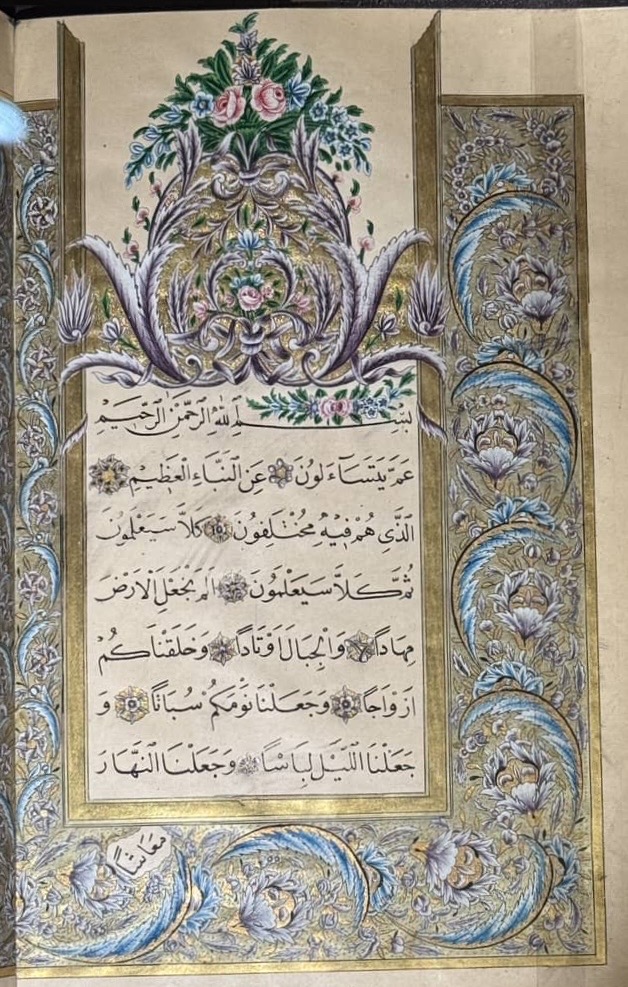 بِسْمِ اللّٰهِ الرَّحْمٰنِ الرَّحٖيمِ
عَمَّ يَتَسَاءَلُونَ عَنِ النَّبَاءِ الْعَظٖيمِ
الَّذٖى هُمْ فٖيهِ مُخْتَلِفُونَ كَلَّا سَيَعْلَمُونَ
ثُمَّ كَلَّا سَيَعْلَمُونَ اَلَمْ نَجْعَلِ الْاَرْضَ
مِهَادًا وَالْجِبَالَ اَوْتَادًا وَخَلَقْنَاكُمْ
اَزْوَاجًا وَجَعَلْنَا نَوْمَكُمْ سُبَاتًا وَ
جَعَلْنَا اللَّيْلَ لِبَاسًا وَجَعَلْنَا النَّهَارَ
مَعَاشًا